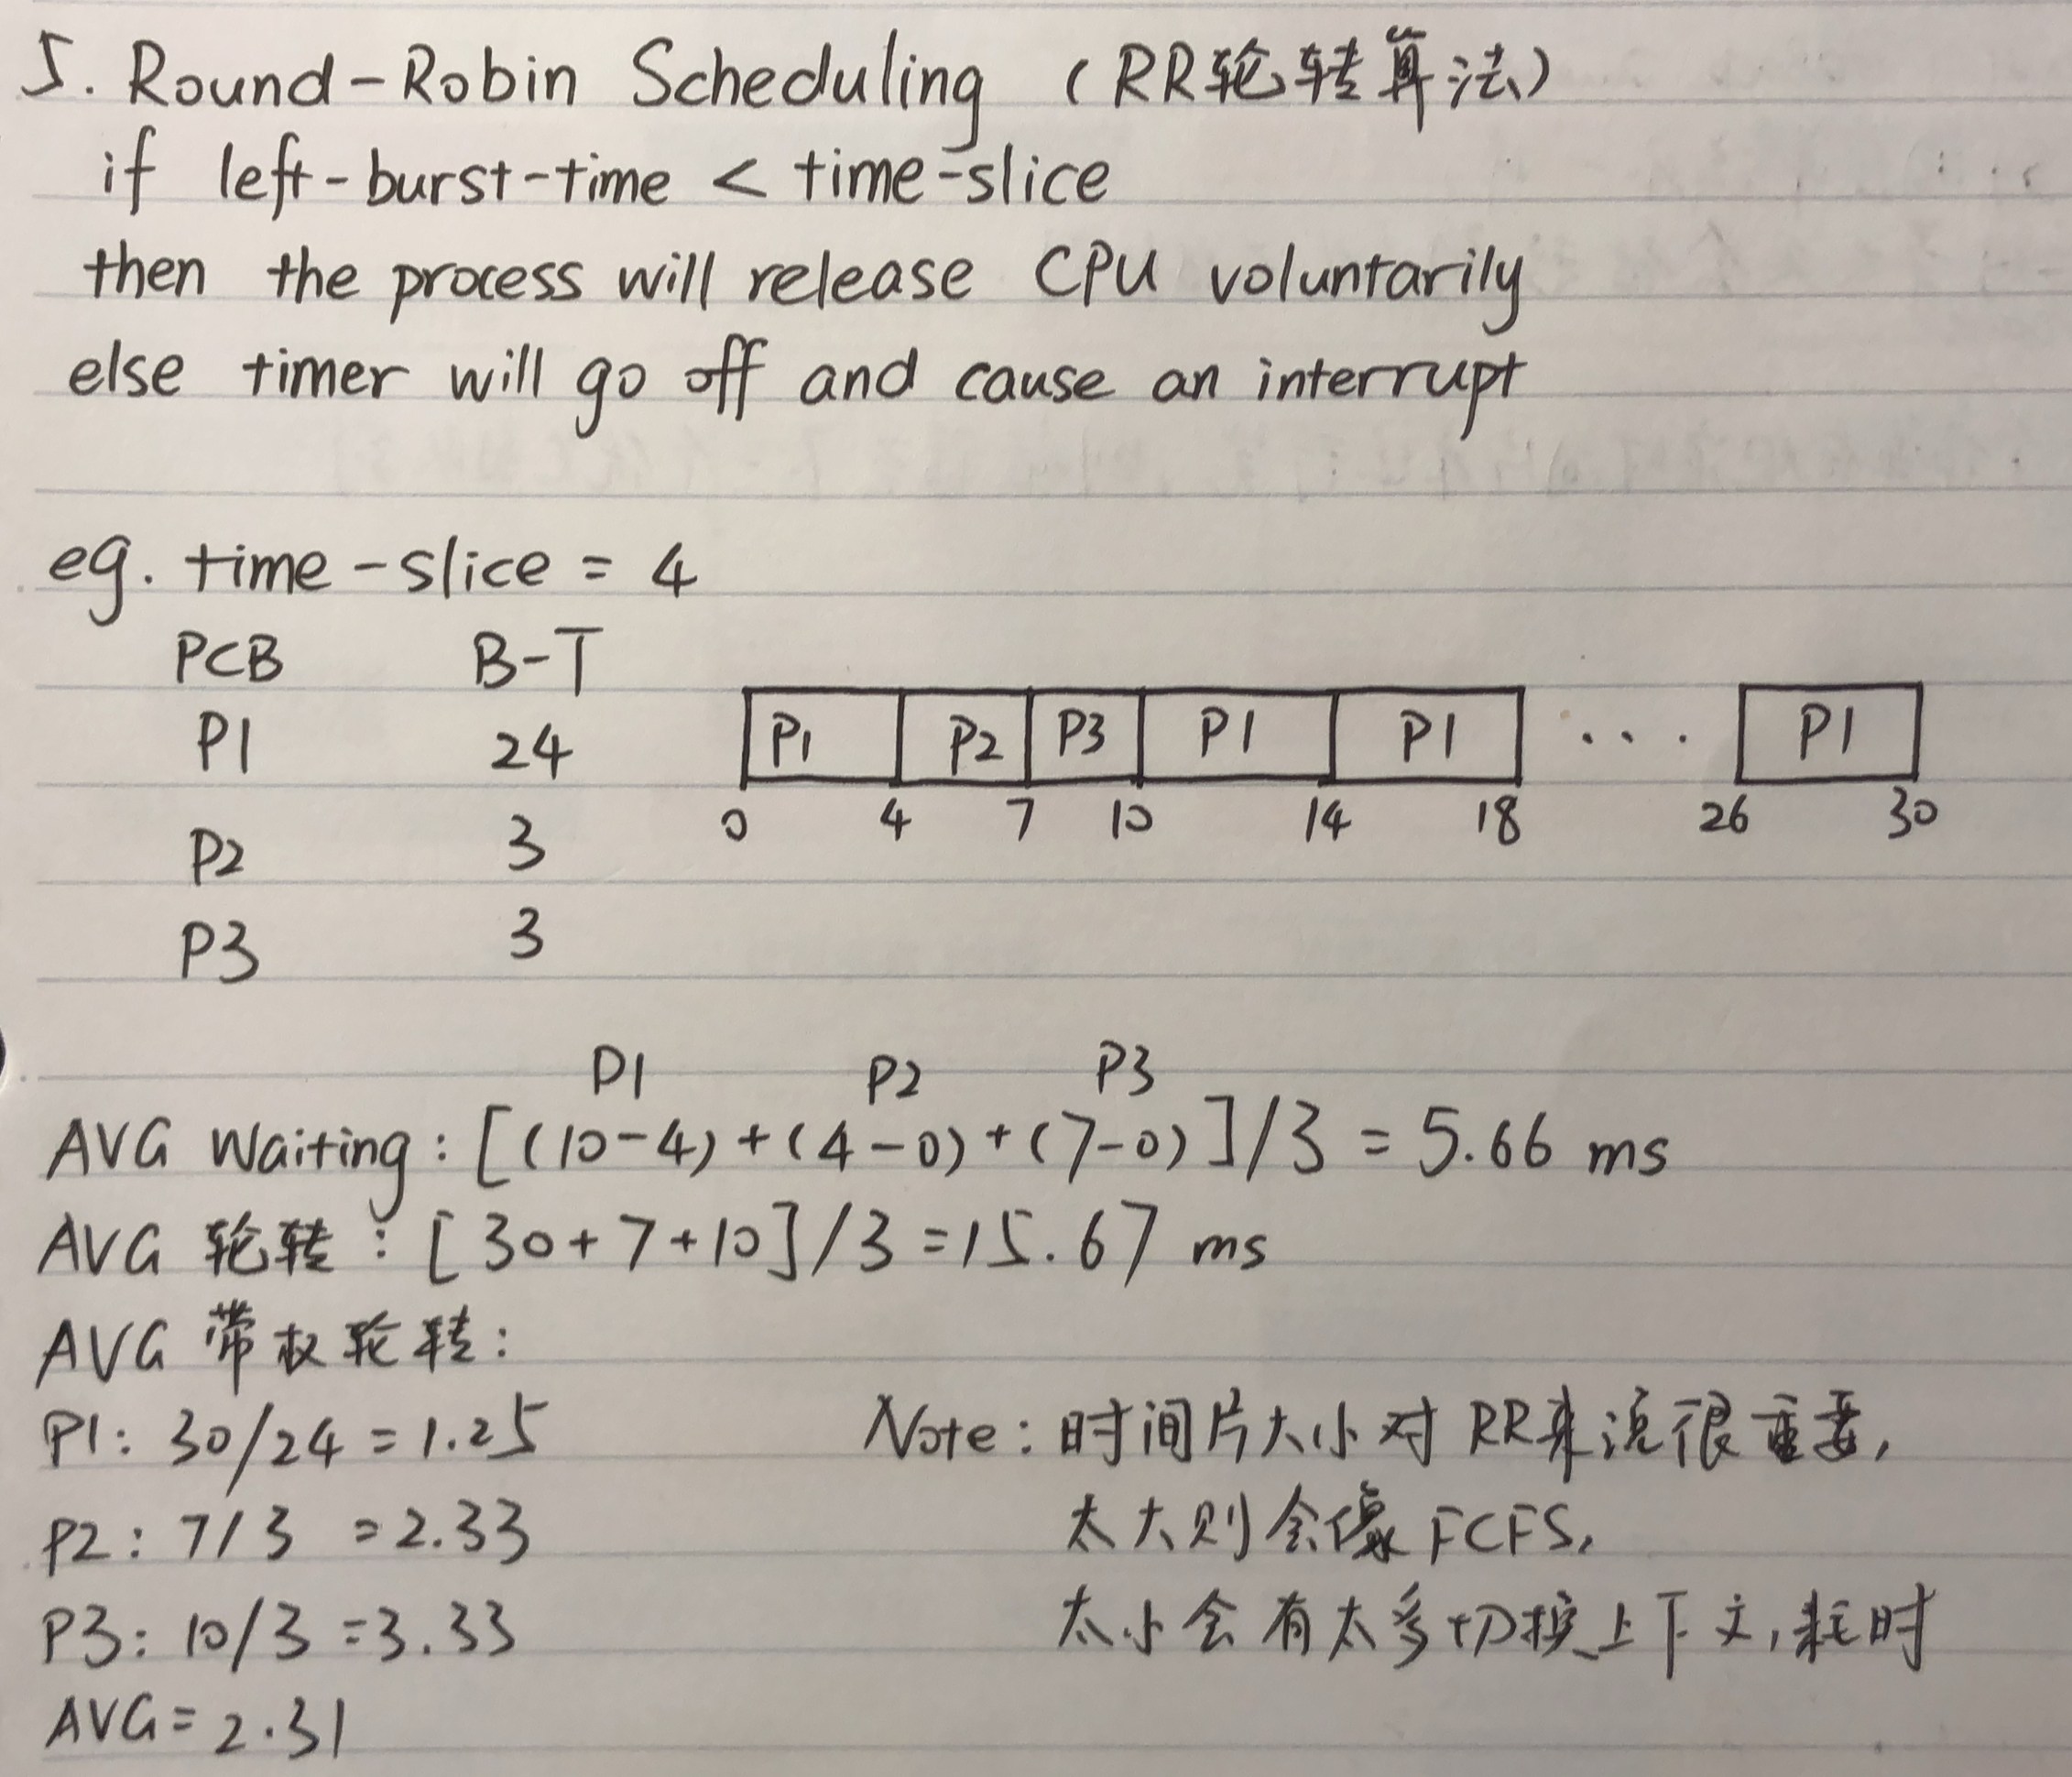 5. Round-Robin Scheduling (RR轮转算法)
if left-burst-time < time-slice
then the process will release CPU voluntarily
else timer will go off and cause an interrupt
eg. time-slice = 4
PCB B-T
P1 24
P2 3
P3 3
P1 P2 P3 P1 P1 ... P1
0 4 7 10 14 18 26 30
P1 P2 P3
AVG Waiting: [(10-4)+(4-0)+(7-0)]/3 = 5.66 ms
AVG 轮转: [30+7+10]/3=15.67 ms
AVG 带权轮转:
P1: 30/24=1.25
P2: 7/3 =2.33
P3: 10/3=3.33
AVG=2.31
Note: 时间片大小对RR来说很重要,
太大则会像FCFS,
太小会有太多切换上下文,耗时